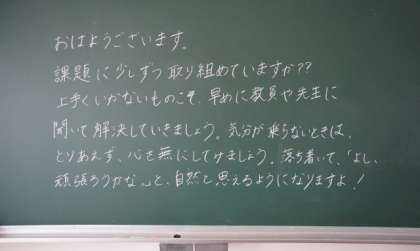 おはようございます。
課題に少しずつ取り組めていますか??
上手くいかないものこそ、早めに教員や先生に
聞いて解決していきましょう。気分が乗らないときは、
とりあえず、心を無にしてけましょう。落ち着いて、「よし、
頑張ろうかな。」と、自然と思えるようになりますよ!